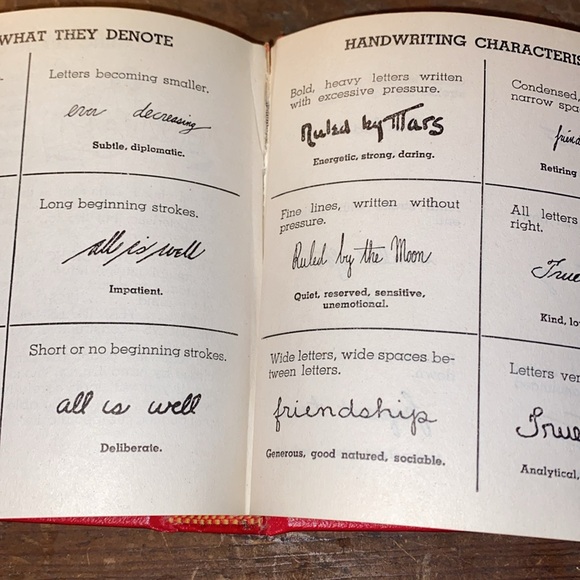 WHAT THEY DENOTE
Letters becoming smaller.
ever decreasing
Subtle, diplomatic.
Long beginning strokes.
all is well
Impatient.
Short or no beginning strokes.
all is well
Deliberate.
HANDWRITING CHARACTERIS
Bold, heavy letters written
with excessive pressure.
Ruled by Mars
Energetic, strong, daring.
Fine lines, written without
pressure.
Ruled by the Moon
Quiet, reserved, sensitive,
unemotional.
Wide letters, wide spaces be-
tween letters.
friendship
Generous, good natured, sociable.
Condensed,
narrow spa
friend
Retiring
All letters
right.
True
Kind, lo
Letters ver
True
Analytical,